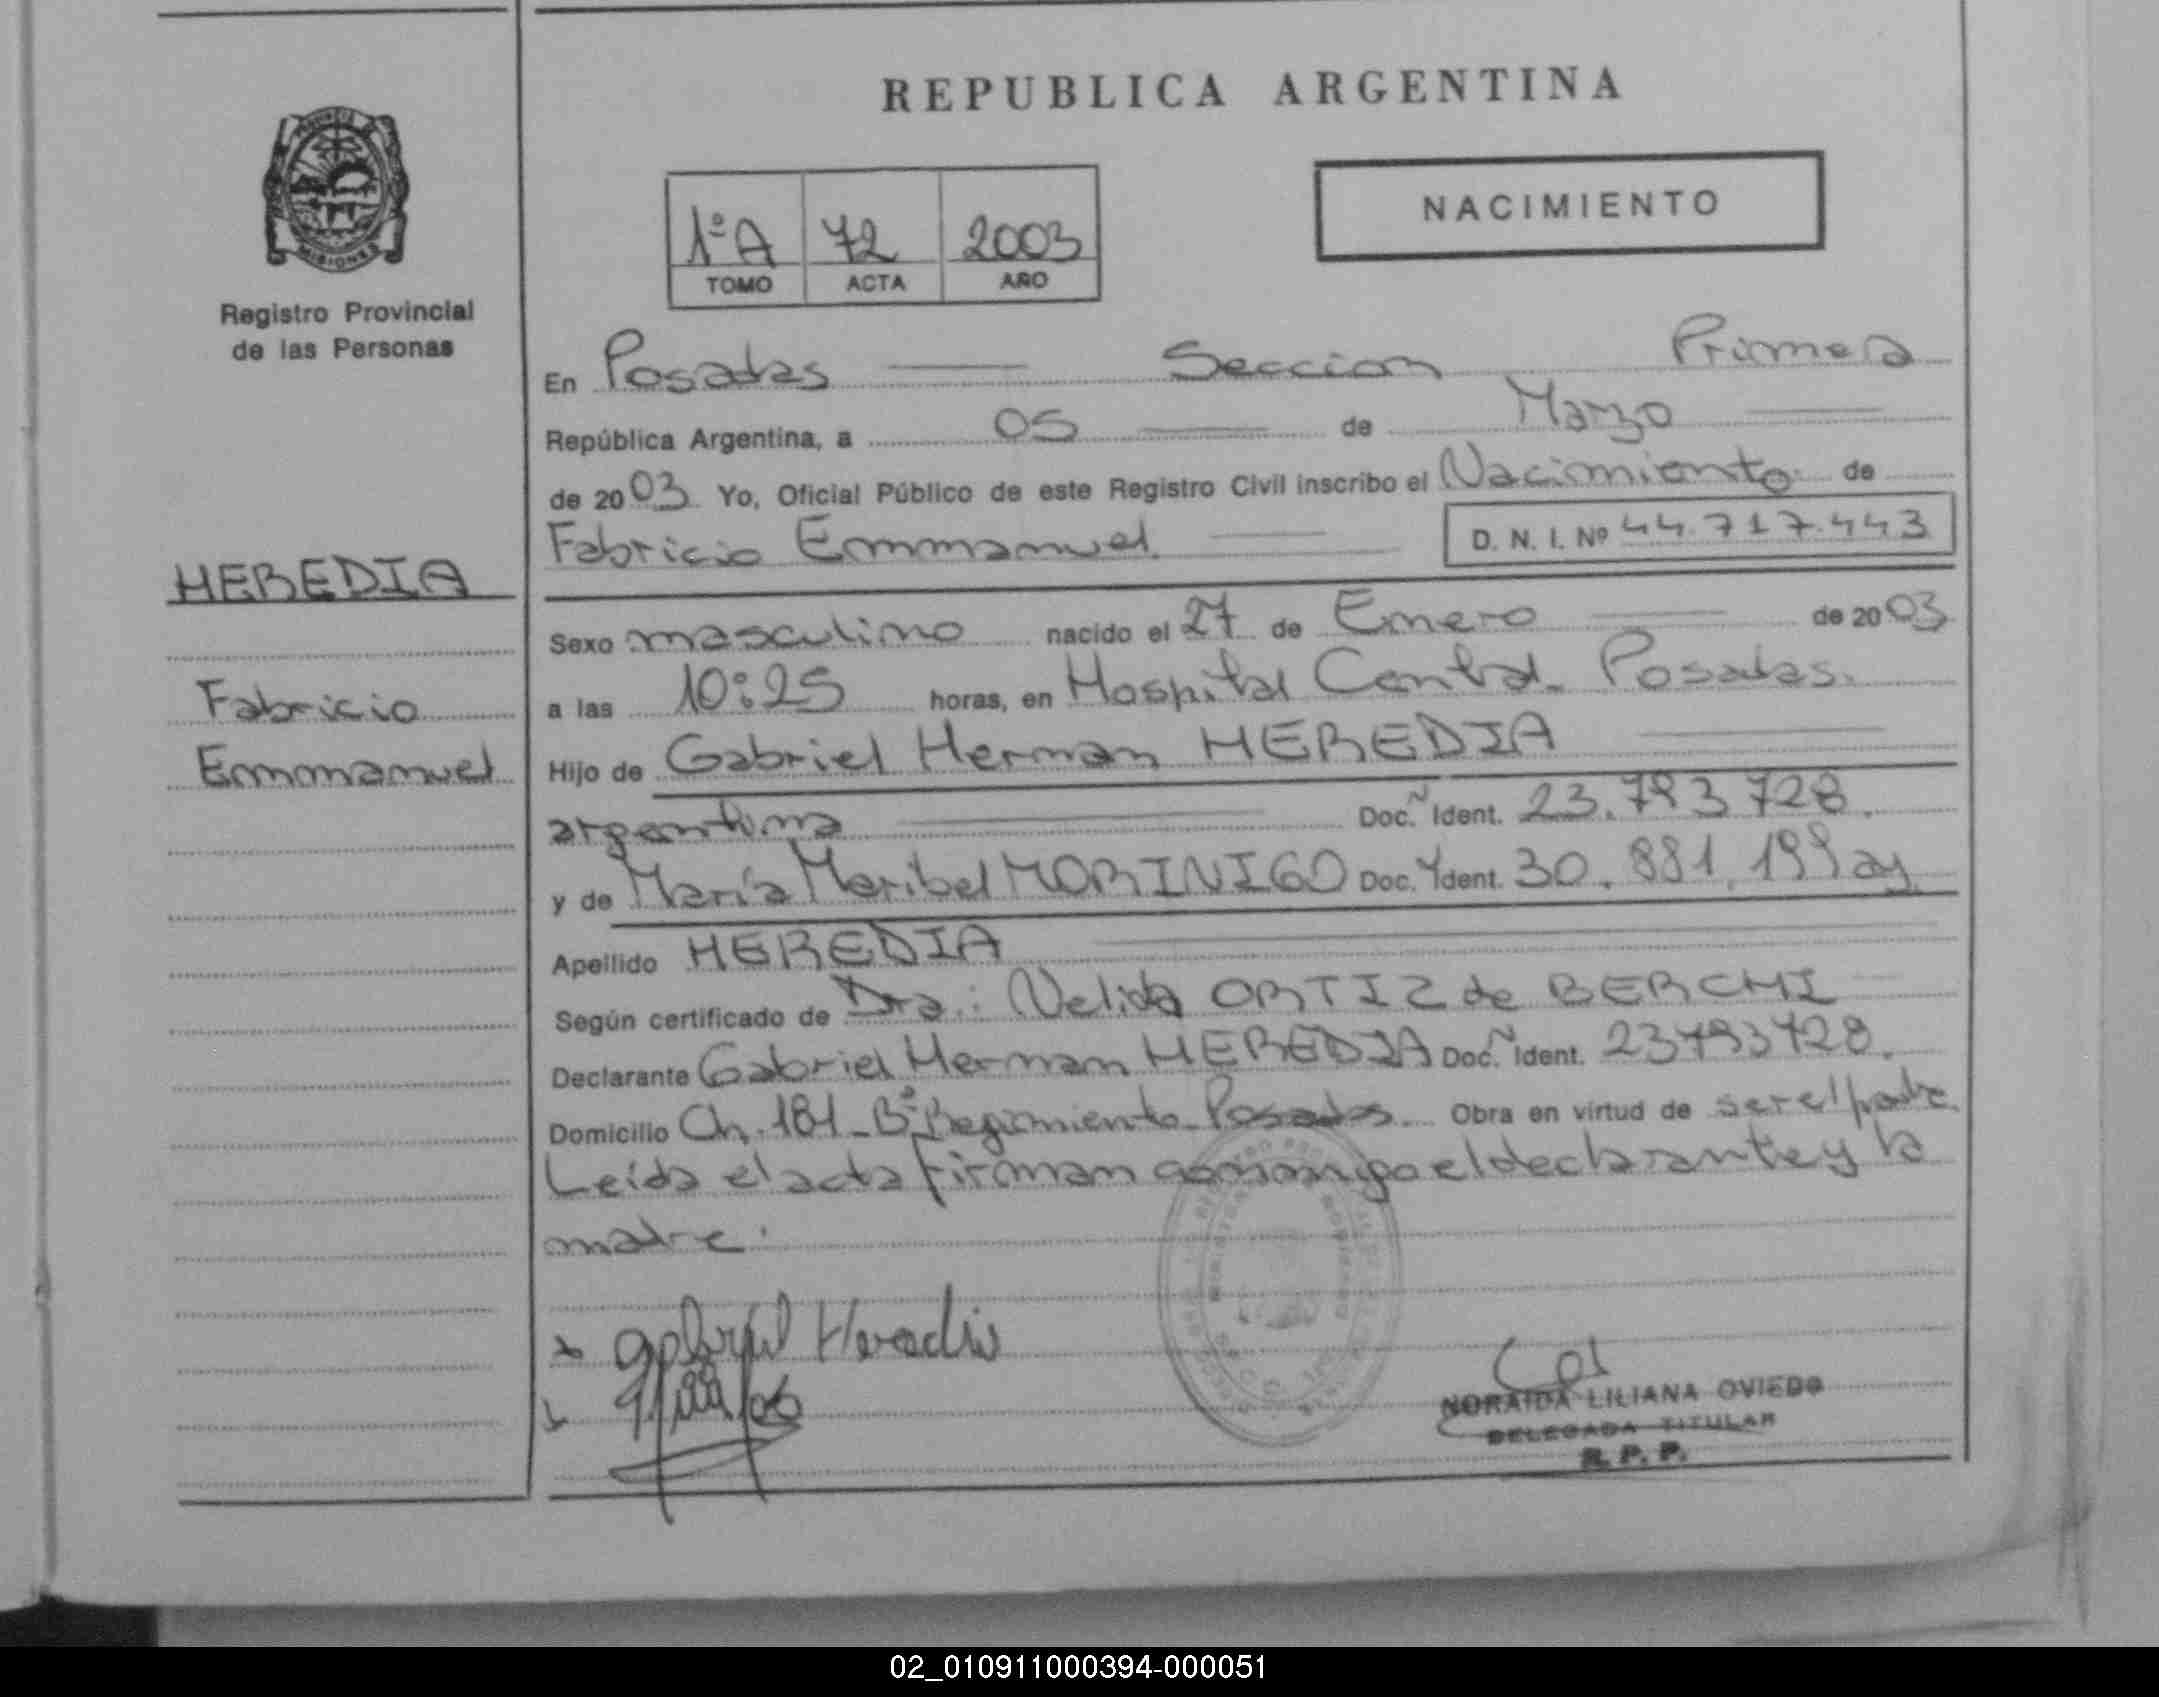 REPUBLICA ARGENTINA
NACIMIENTO
1ºA 72 2003
TOMO ACTA AÑO
MISIONES
Registro Provincial
de las Personas
HEREDIA
Fabricio
Emmanuel
En Posadas Seccion Primera
República Argentina, a 05 de Marzo
de 2003 Yo, Oficial Público de este Registro Civil inscribo el Nacimiento de
Fabricio Emmanuel. D. N. I. Nº 44.717.443
Sexo masculino nacido el 27 de Enero de 2003
a las 10:25 horas, en Hospital Central. Posadas.
Hijo de Gabriel Hernan HEREDIA
argentina Doc. Ident. 23.793728.
y de María Maribel MORINIGO Doc. Ident. 30.881.199 arg.
Apellido HEREDIA
Según certificado de Dra.: Nelida ORTIZ de BERCHI
Declarante Gabriel Hernan HEREDIA Doc. Ident. 23793728.
Domicilio Ch. 181 - Bº Regimiento - Posadas. Obra en virtud de ser el padre.
Leída el acta firman conmigo el declarante y la
madre.
Gabriel Heredia
NORAIDA LILIANA OVIEDO
DELEGADA TITULAR
R. P. P.
02_010911000394-000051